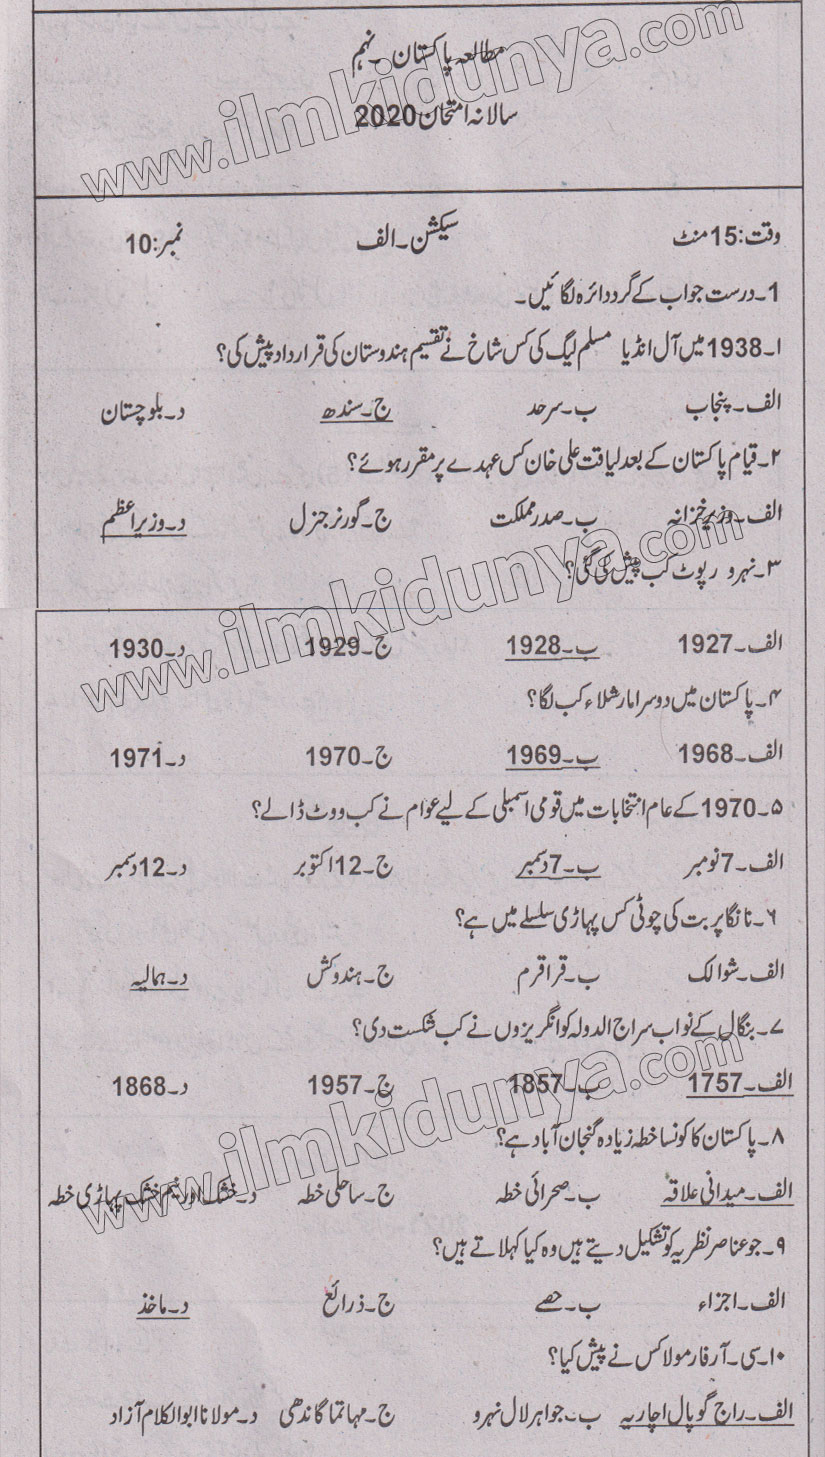 مطالعہ پاکستان۔نہم
سالانہ امتحان 2020
وقت:15 منٹ سیکشن۔الف نمبر:10
1۔درست جواب کے گرد دائرہ لگائیں۔
ا۔1938 میں آل انڈیا مسلم لیگ کی کس شاخ نے تقسیم ہندوستان کی قرارداد پیش کی؟
الف۔پنجاب ب۔سرحد ج۔سندھ د۔بلوچستان
۲۔قیام پاکستان کے بعد لیاقت علی خان کس عہدے پر مقرر ہوئے؟
الف۔وزیر خزانہ ب۔صدر مملکت ج۔گورنر جنرل د۔وزیراعظم
۳۔نہرو رپوٹ کب پیش کی گئی؟
الف۔1927 ب۔1928 ج۔1929 د۔1930
۴۔پاکستان میں دوسرا مارشلاء کب لگا؟
الف۔1968 ب۔1969 ج۔1970 د۔1971
۵۔1970 کے عام انتخابات میں قومی اسمبلی کے لیے عوام نے کب ووٹ ڈالے؟
الف۔7 نومبر ب۔7 دسمبر ج۔12 اکتوبر د۔12 دسمبر
۶۔نانگا پربت کی چوٹی کس پہاڑی سلسلے میں ہے؟
الف۔شوالک ب۔قراقرم ج۔ہندوکش د۔ہمالیہ
۷۔بنگال کے نواب سراج الدولہ کو انگریزوں نے کب شکست دی؟
الف۔1757 ب۔1857 ج۔1957 د۔1868
۸۔پاکستان کا کونسا خطہ زیادہ گنجان آباد ہے؟
الف۔میدانی علاقہ ب۔صحرائی خطہ ج۔ساحلی خطہ د۔خشک اور نیم خشک پہاڑی خطہ
۹۔جو عناصر نظریہ کو تشکیل دیتے ہیں وہ کیا کہلاتے ہیں؟
الف۔اجزاء ب۔حصے ج۔ذرائع د۔ماخذ
۱۰۔سی۔آر فارمولا کس نے پیش کیا؟
الف۔راج گوپال اچاریہ ب۔جواہر لال نہرو ج۔مہاتما گاندھی د۔مولانا ابوالکلام آزاد
www.ilmkidunya.com
www.ilmkidunya.com
www.ilmkidunya.com